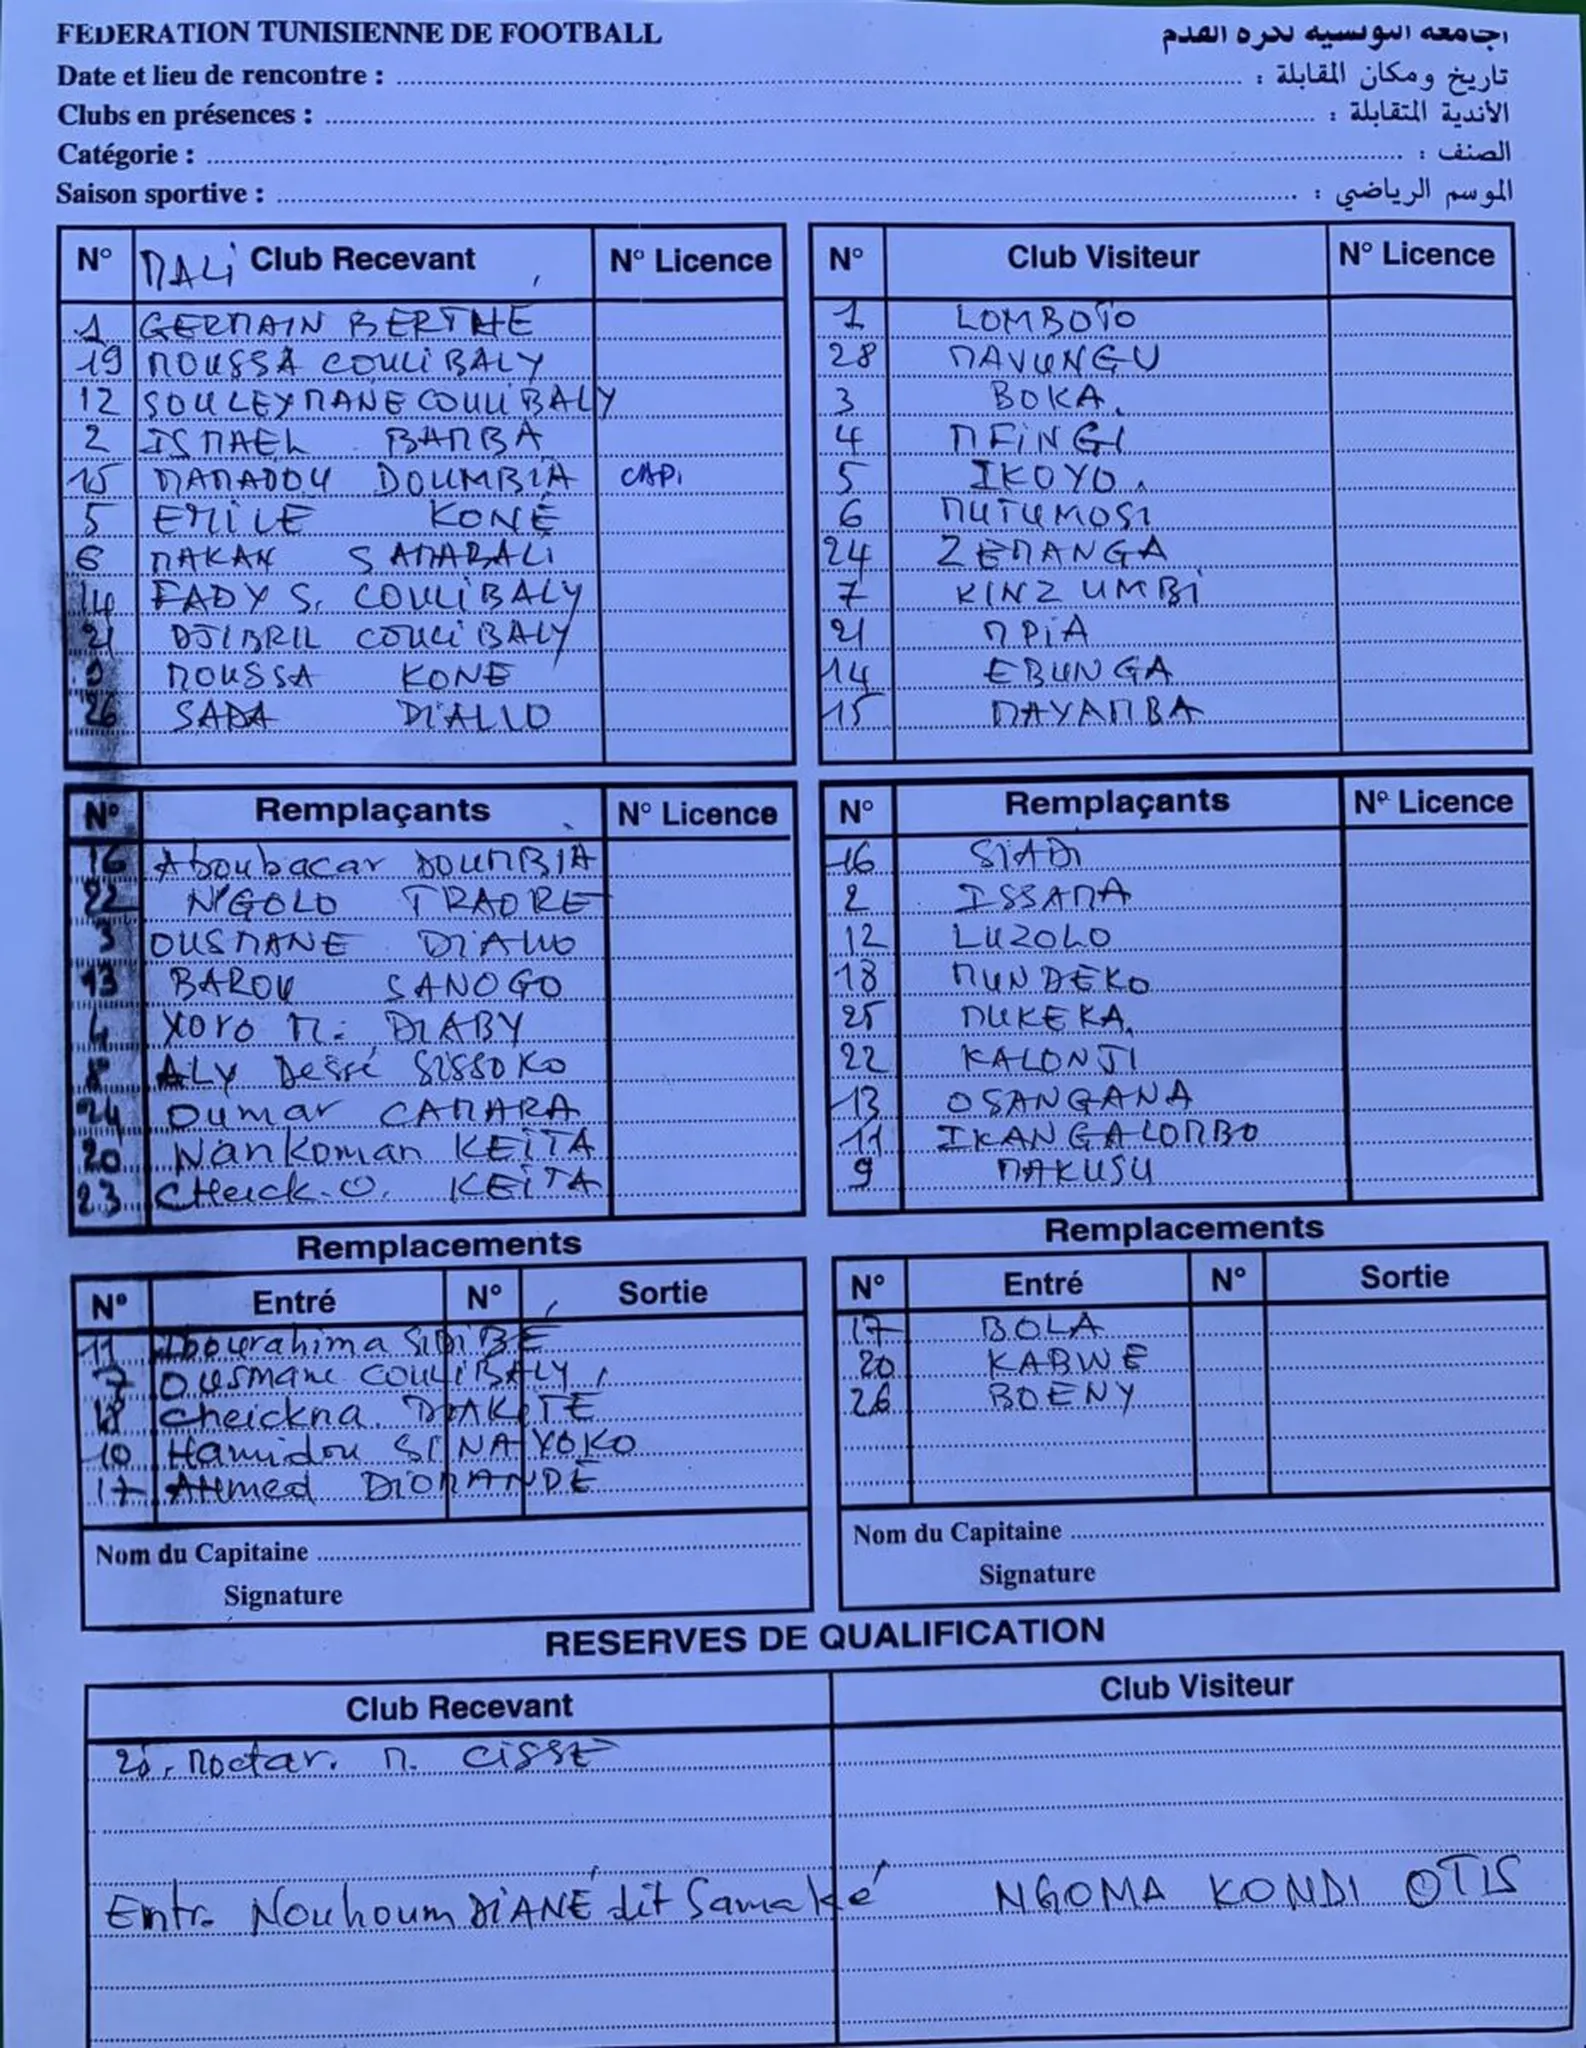 FEDERATION TUNISIENNE DE FOOTBALL
الجامعة التونسية لكرة القدم
Date et lieu de rencontre : تاريخ ومكان المقابلة :
Clubs en présences : الأندية المتقابلة :
Catégorie : الصنف :
Saison sportive : الموسم الرياضي :
N° MALI Club Recevant N° Licence
1 GERMAIN BERTHE
19 MOUSSA COULIBALY
12 SOULEYMANE COULIBALY
2 ISMAEL BAMBA
15 MAMADOU DOUMBIA CAP.
5 EMILE KONÉ
6 MAKAN SAMABALI
14 FADY S. COULIBALY
21 DJIBRIL COULIBALY
9 MOUSSA KONE
26 SADA DIALLO
N° Club Visiteur N° Licence
1 LOMBOTO
28 MAVUNGU
3 BOKA
4 MFINGI
5 IKOYO
6 MUTUMOSI
24 ZEMANGA
7 KINZUMBI
21 MPIA
14 EBUNGA
15 MAYAMBA
N° Remplaçants N° Licence
16 Aboubacar DOUMBIA
22 N'GOLO TRAORE
3 OUSMANE DIALLO
13 BAROU SANOGO
4 KORO M. DIABY
ALY Dessé SISSOKO
24 Oumar CAMARA
20 Nankoman KEITA
23 CHeick.O. KEITA
N° Remplaçants N° Licence
16 SIADI
2 ISSAMA
12 LUZOLO
18 MUNDEKO
25 MUKEKA
22 KALONJI
13 OSANGANA
11 IKANGALOMBO
9 MAKUSU
Remplacements
N° Entré N° Sortie
11 Ibourahima SIDIBÉ
7 Ousmane COULIBALY
18 Cheickna DIAKITE
10 Hamidou SINAYOKO
17 AHmed DIOMANDÉ
Nom du Capitaine
Signature
Remplacements
N° Entré N° Sortie
17 BOLA
20 KABWE
26 BOENY
Nom du Capitaine
Signature
RESERVES DE QUALIFICATION
Club Recevant Club Visiteur
Moctar. M. CISSE
Entr. Nouhoum DIANÉ dit Samaké NGOMA KONDI OTIS